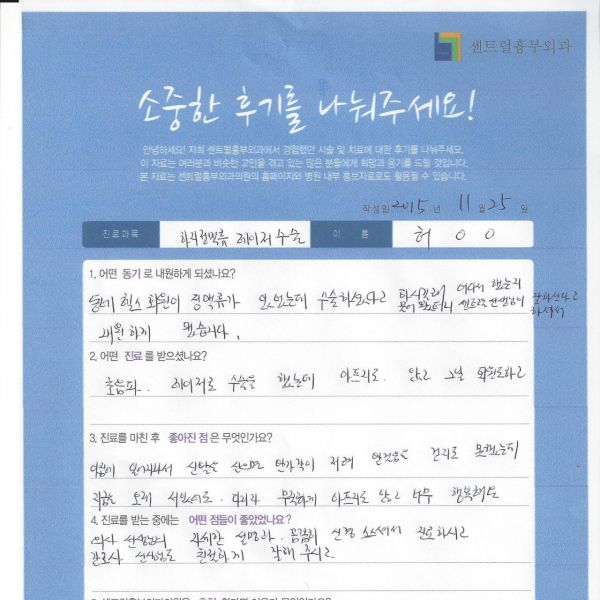 센트럴흉부외과
소중한 후기를 나눠주세요!
안녕하세요! 저희 센트럴흉부외과에서 경험했던 시술 및 치료에 대한 후기를 나눠주세요.
이 자료는 여러분과 비슷한 고민을 겪고 있는 많은 분들에게 희망과 용기를 드릴 것입니다.
본 자료는 센트럴흉부외과의원의 홈페이지와 병원 내부 홍보자료로도 활용될 수 있습니다.
작성일 2015 년 11 월 25 일
진료과목 하지정맥류 레이저 수술 이 름 허 O O
1. 어떤 동기로 내원하게 되셨나요?
헬스 회원이 정맥류가 있었는데 수술하셨다고 하시길래 어디서 했는지
물어 봤더니 센트럴 선생님이 잘하신다고 하셔서
내원하게 됐습니다.
2. 어떤 진료를 받으셨나요?
초음파. 레이저로 수술을 했는데 아프지도 않고 그날
3. 진료를 마친 후 좋아진 점은 무엇인가요?
신발을 저녁 걷지도 못했는데
지금은 오래 서있어도 다리가 아프지도 않고 너무 행복해요
4. 진료를 받는 중에는 어떤 점들이 좋았었나요?
의사 선생님의 자세한 설명과 꼼꼼히 신경 쓰셔서 진료하시고
간호사 선생님도 친절하게 잘해 주시고